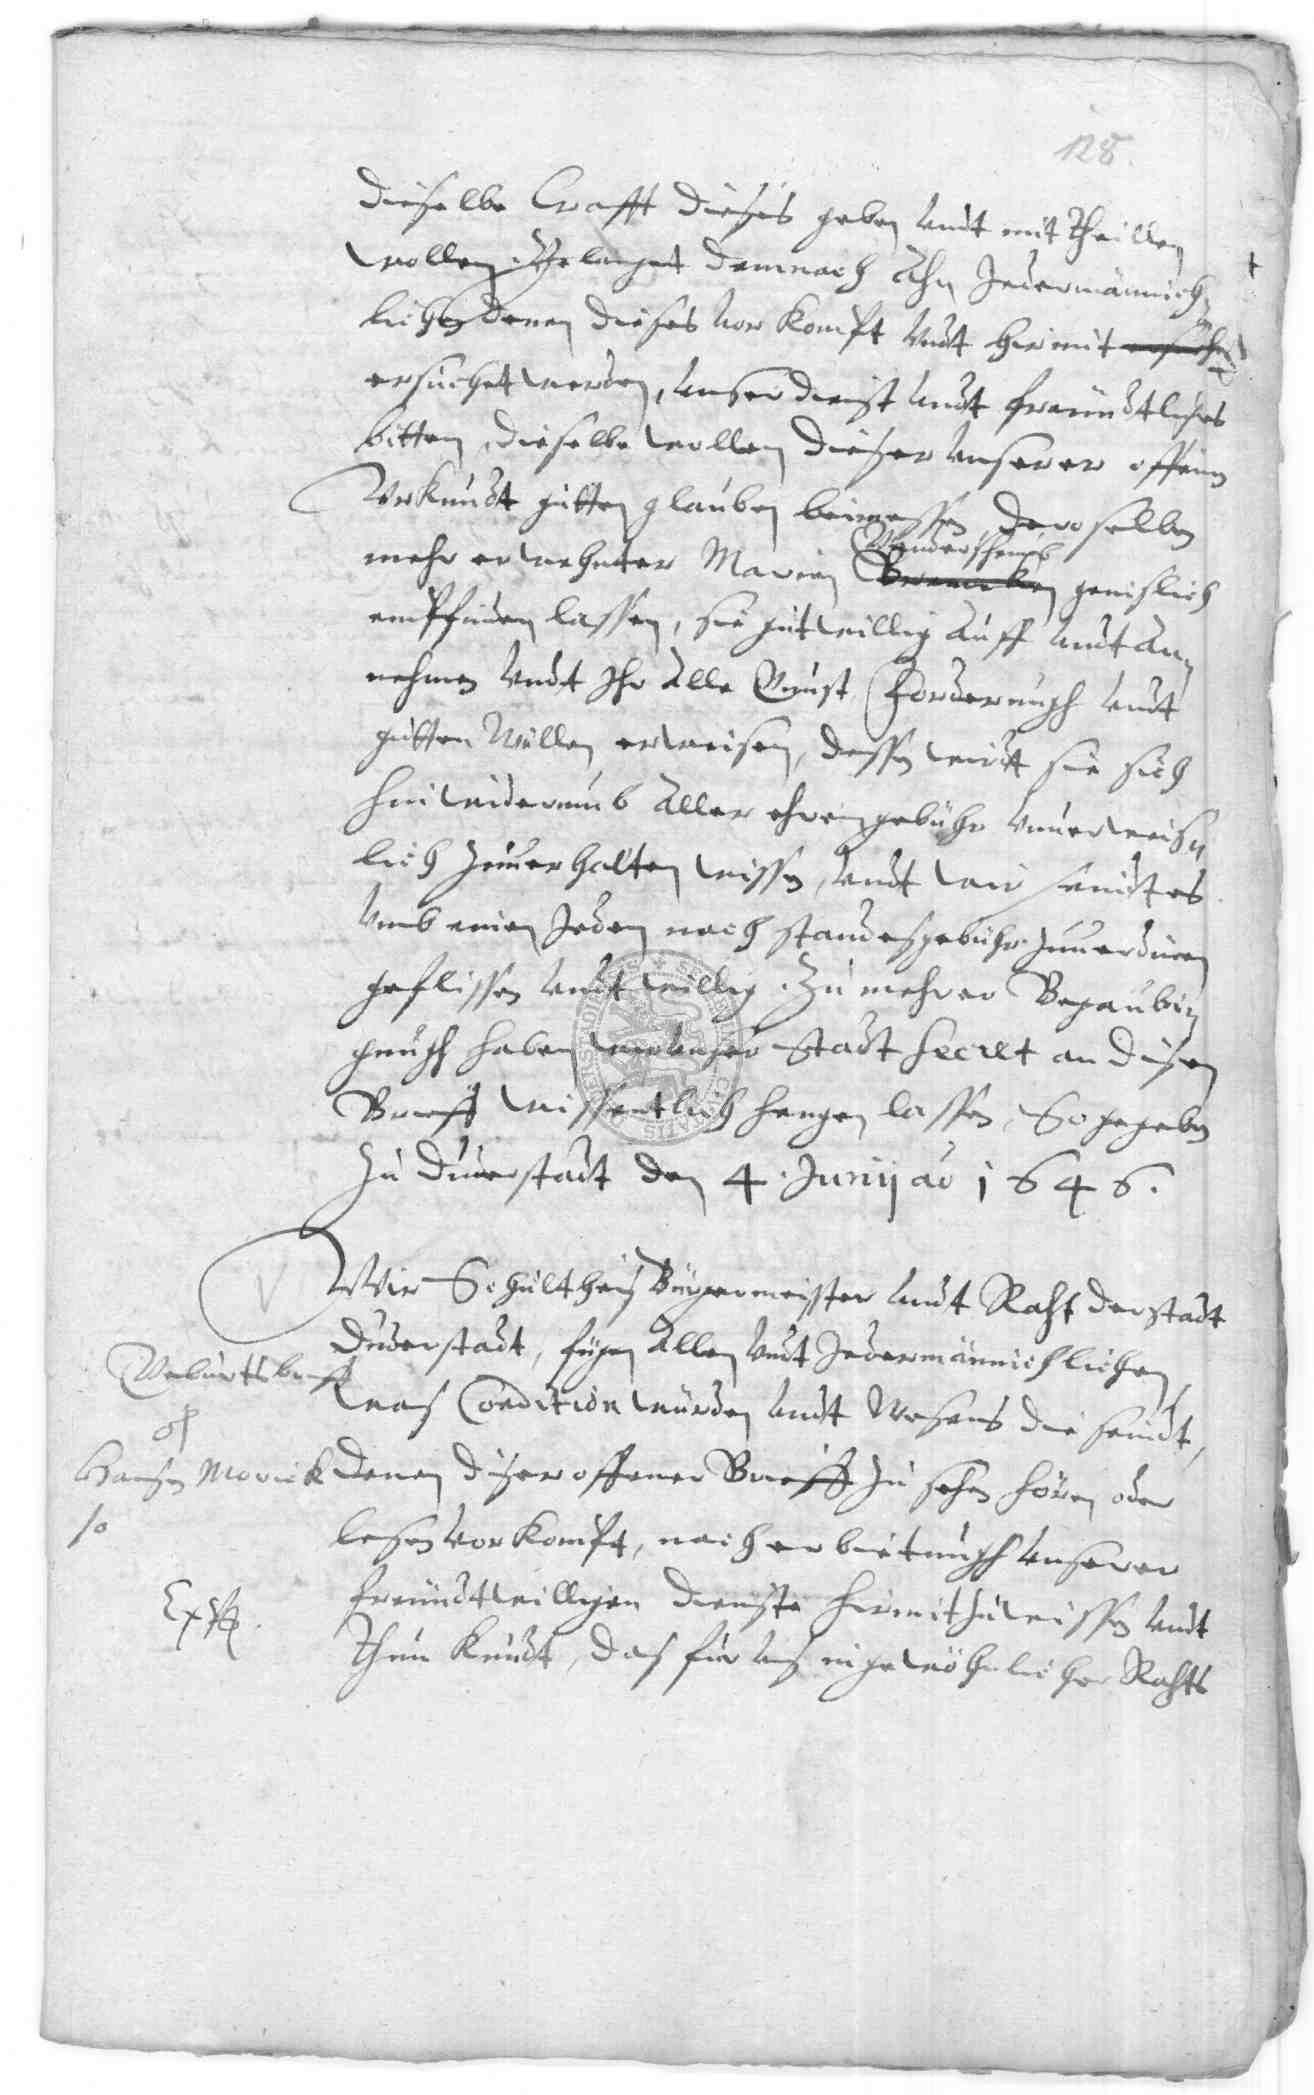 128.
dieselbe Crafft dieses geben undt mit theillen
wollen. Gelanget demnach ahn Jedermännich-
lichen denen dieses vor kompt undt hiermit
ersuchet werden, unser dienst undt freundtliches
bitten, dieselbe wollen dieser unserer offenen
Urkundt gutten glauben beimessen, deroselben
mehr erwehnter Marien genislich
empfinden lassen, sie gutwillig auff undt an
nehmen undt Ihr alle Gunst, forderungh undt
gutten Willen erweisen, dessen wirdt sie sich
hinwiderumb aller ehrengebühr unverweis-
lich zuuerhalten wissen, undt wir seindt es
umb einen Jeden nach standesgebühr zuuerdinen
geflissen undt willig. Zu mehrer Beglaubi-
gungh haben wir unser Stadt Secret an disen
Brieff wissentlich hangen lassen, So gegeben
Zu Duderstadt den 4. Junij ao 1646.
Wir Schultheis Bürgermeister undt Raht der stadt
Duderstadt, fügen allen undt Jedermännichlichen,
Geburtsbrieff
was Condition würden undt Wesens die seindt,
Hansen Morick
denen diser offener Brieff zu sehen hören oder
lesen vorkompt, nach erbietungh unserer
freundtwilligen dienste hiermit zu wissen undt
thun kundt, das für uns in gewöhnlicher Rahts